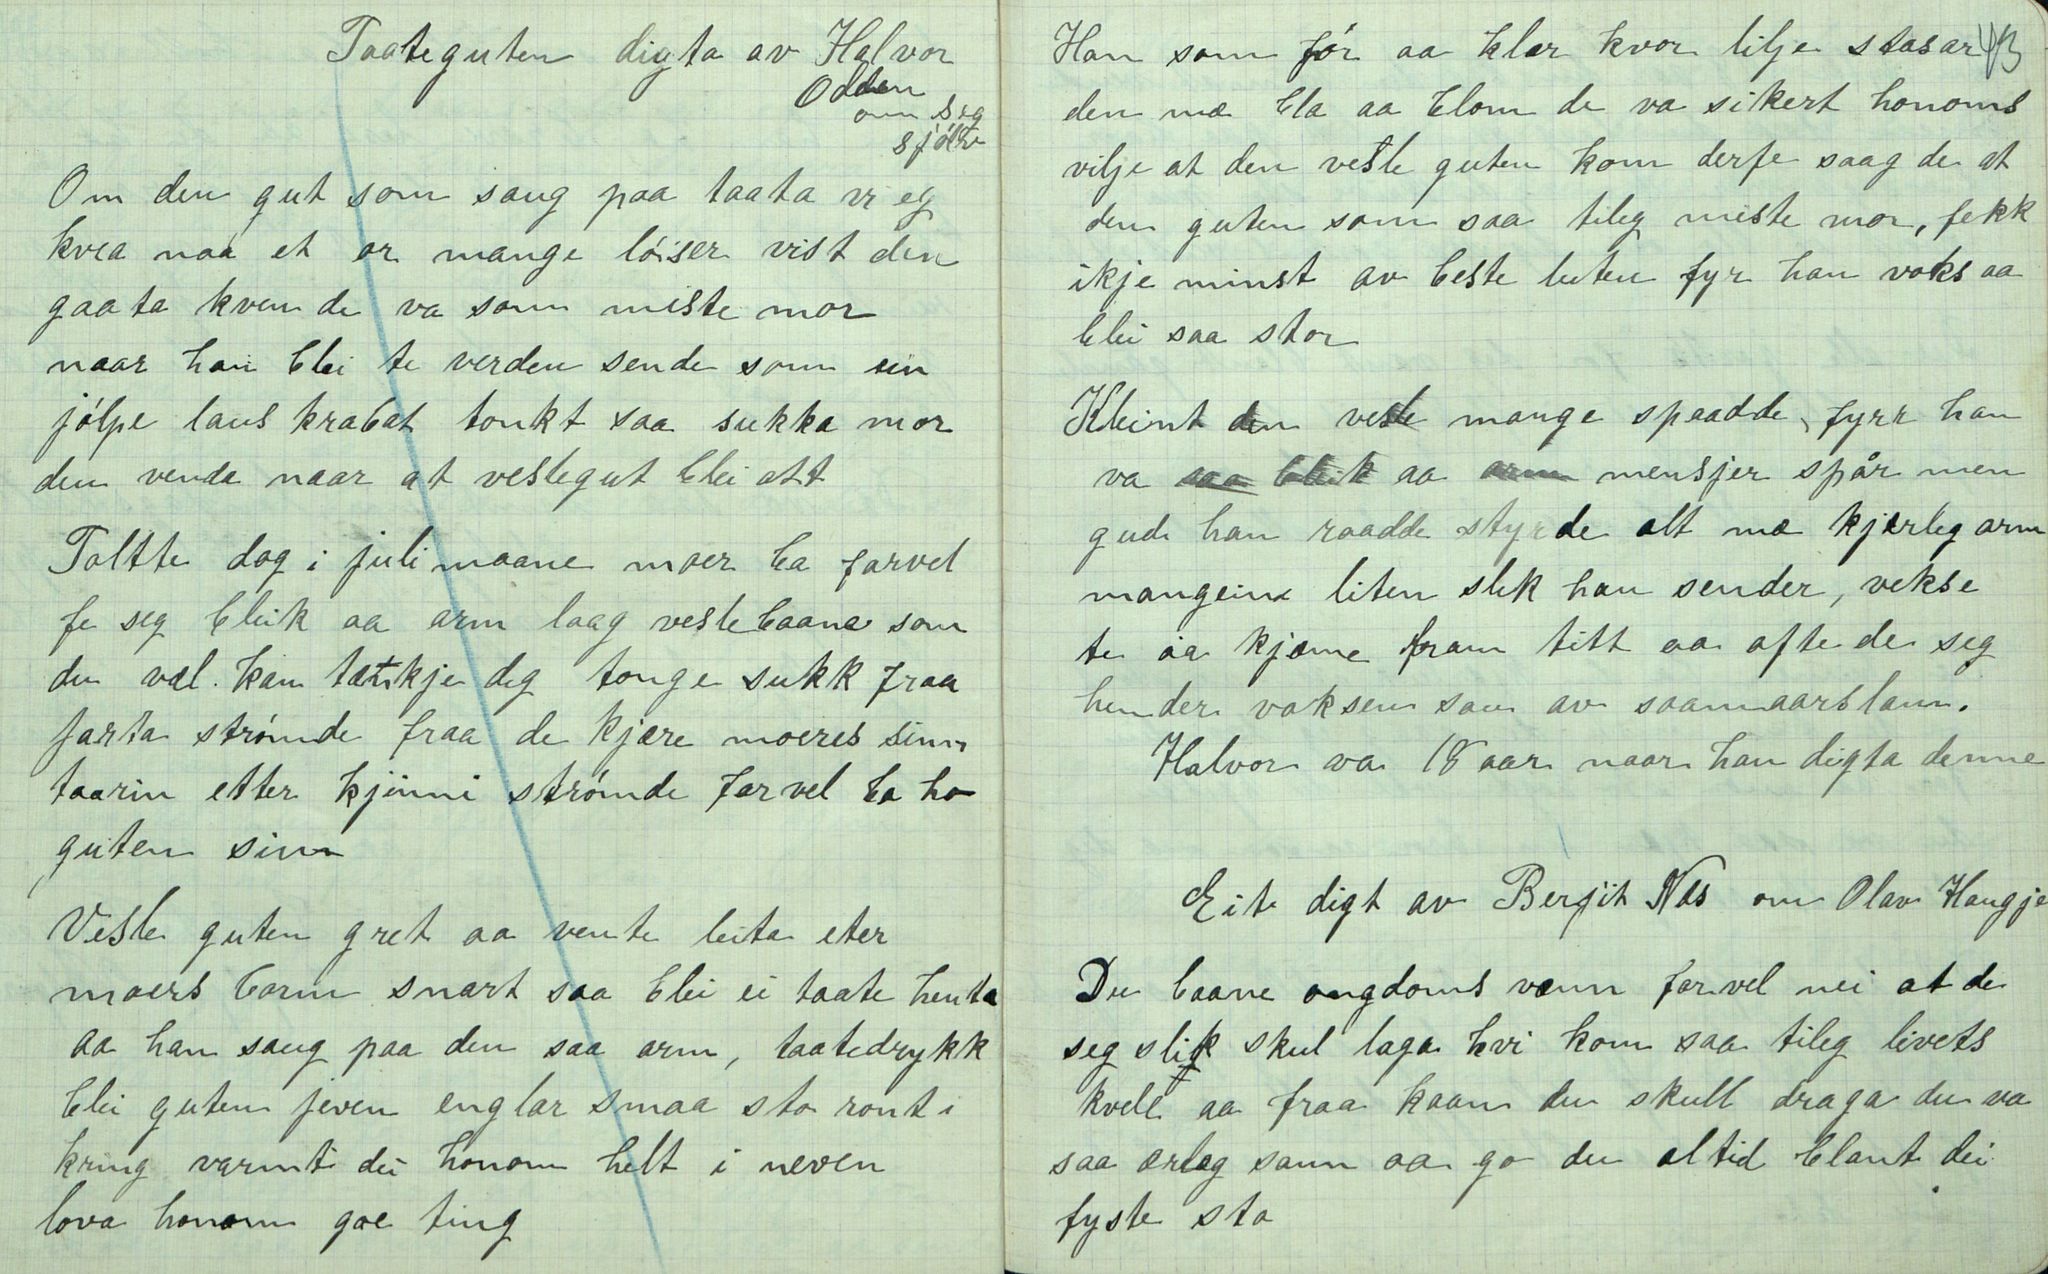 Taateguten digta av Halvor
Odden
om seg
sjølve
Om den gut som saug paa taata vi eg
kvea naa et or mange löiser vist den
gaata kven de va som miste mor
naar han blei te verden sende som ein
jólpe laus krabat tonkt saa sukka mor
den venda naar at veslegut blei att
Toltte dag i juli maane moer ba farvel
fe seg bleik aa arm laag veslebaane som
du væl kan tænkje deg tonge sukk fraa
jarta strømde fraa de kjære moeres sinn
taarin etter kjinni strømde farvel ba ho
guten sinn
Vesle guten gret aa vente leita eter
moers barm snart saa blei ei taate henta
aa han saug paa den saa arm, taatedrykk
blei guten jeven englar smaa sto ront i
kring varmt dei honom helt i neven
lova honom goe ting
Han som før aa klær kvor lilje stasar 43
den mæ bla aa blom de va sikert honoms
vilje at den vesle guten kom derfe saag de at
den guten som saa tileg miste mor, fekk
ikje minst av beste luten fyr han voks aa
blei saa stor
Kleint den vesle mange spaadde, fyrr han
va saa bleik aa arm mensjer spår men
gud han raadde styrde alt mæ kjærleg arm
mangein liten slik han sender, vekse
te aa kjæme fram titt aa ofte de seg
hender voksen som av saamaarslann.
Halvor va 18 aar naar han digta denne
Eit digt av Bergit Nes om Olav Haugje
Du baane ongdoms vænn farvel nei at de
seg slik skul laga kvi kom saa tileg livets
kvell aa fraa kaan du skull draga du va
saa ærleg sann aa go du altid blant dei
fyste sto